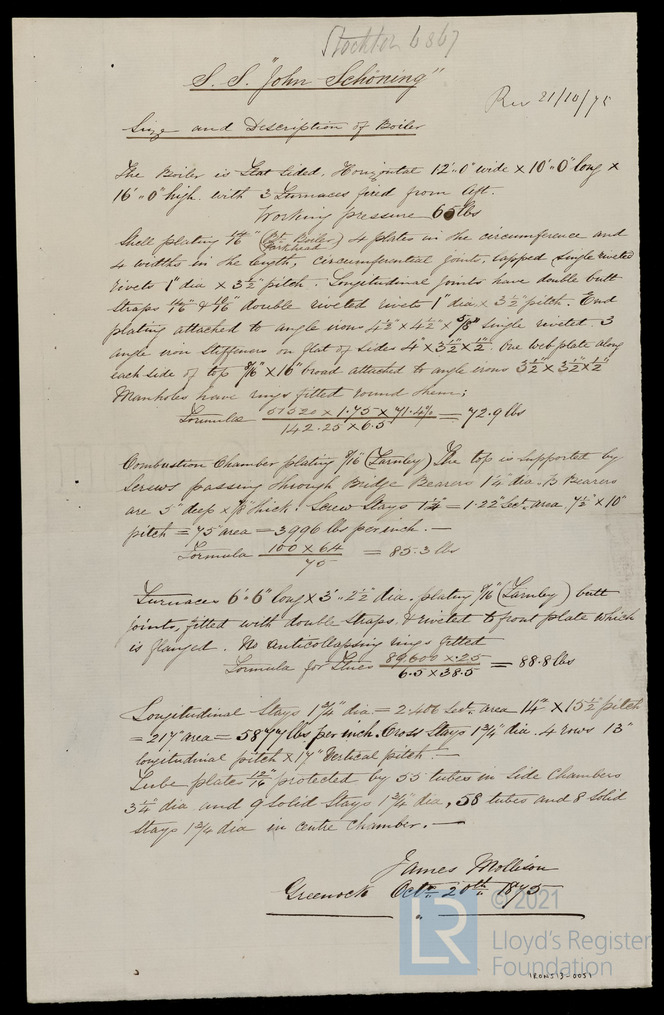 Stockton 6867
S. S. "John Schöning"
Rec 21/10/75
Size and Description of Boiler
The Boiler is Flat sided. Horizontal 12'..0" wide × 10'..0" long ×
16'..0" high. with 3 Furnaces fired from left.
Working pressure 65 lbs
Shell plating /16" (Bt. Boiler Parkhead) 4 plates in the circumference and
4 widths in the length, circumferential joints, lapped single riveted
rivets 1" dia × 3½" pitch. Longitudinal joints have double butt
straps double riveted rivets 1" dia × 3½" pitch. End
plating attached to angle irons 4½" × 4½" × 5/8" single riveted. 3
angle iron stiffeners on flat of sides 4" × 3½" × ½". One web plate along
each side of top 9/16" × 16" broad attached to angle irons 3½" × 3½" × ½"
Manholes have rings fitted round them;
Formula 51520 × 1.75 × 71.4% / 142.25 × 6.5 = 72.9 lbs
Combustion Chamber plating 9/16 (Farnley) The top is supported by
Screws passing through Bridge Bearers 1¼ dia. Bearers
are 5" deep × thick. Screw Stays 1¼ = 1.22" Sect. area. 7½" × 10"
pitch = 75" area = 3996 lbs per inch. —
Formula 100 × 64 / 75 = 85.3 lbs
Furnaces 6'..6" long × 3'..2½" dia. plating 9/16 (Farnley) butt
joints, fitted with double straps & riveted to front plate which
is flanged. No anticollapsing rings fitted
Formula for Flues 89600 × .25 / 6.5 × 38.5 = 88.8 lbs
Longitudinal Stays 1¾" dia = 2.406 Sect. area 14" × 15½ pitch
= 217" area = 5877 lbs per inch. Cross Stays 1¾" dia. 4 rows 13"
longitudinal pitch × 17" Vertical pitch. —
Tube plate 12/16" protected by 55 tubes in Side Chambers
3¼ dia and 9 Solid Stays 1¾" dia, 58 tubes and 8 Solid
Stays 1¾ dia in centre Chamber. —
James Mollison
Greenock Octr. 20th 1875
© 2021
LR
Lloyd's Register
Foundation
IRON513-0051